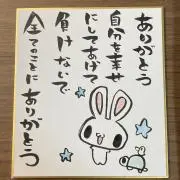 ありがとう
自分を幸せ
にしてあげて
負けないで
全てのことにありがとう